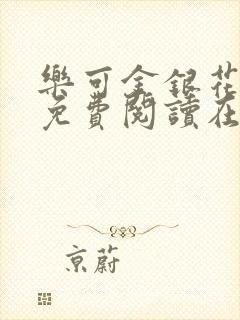 樂可金銀花
免費閱讀在
京蔚